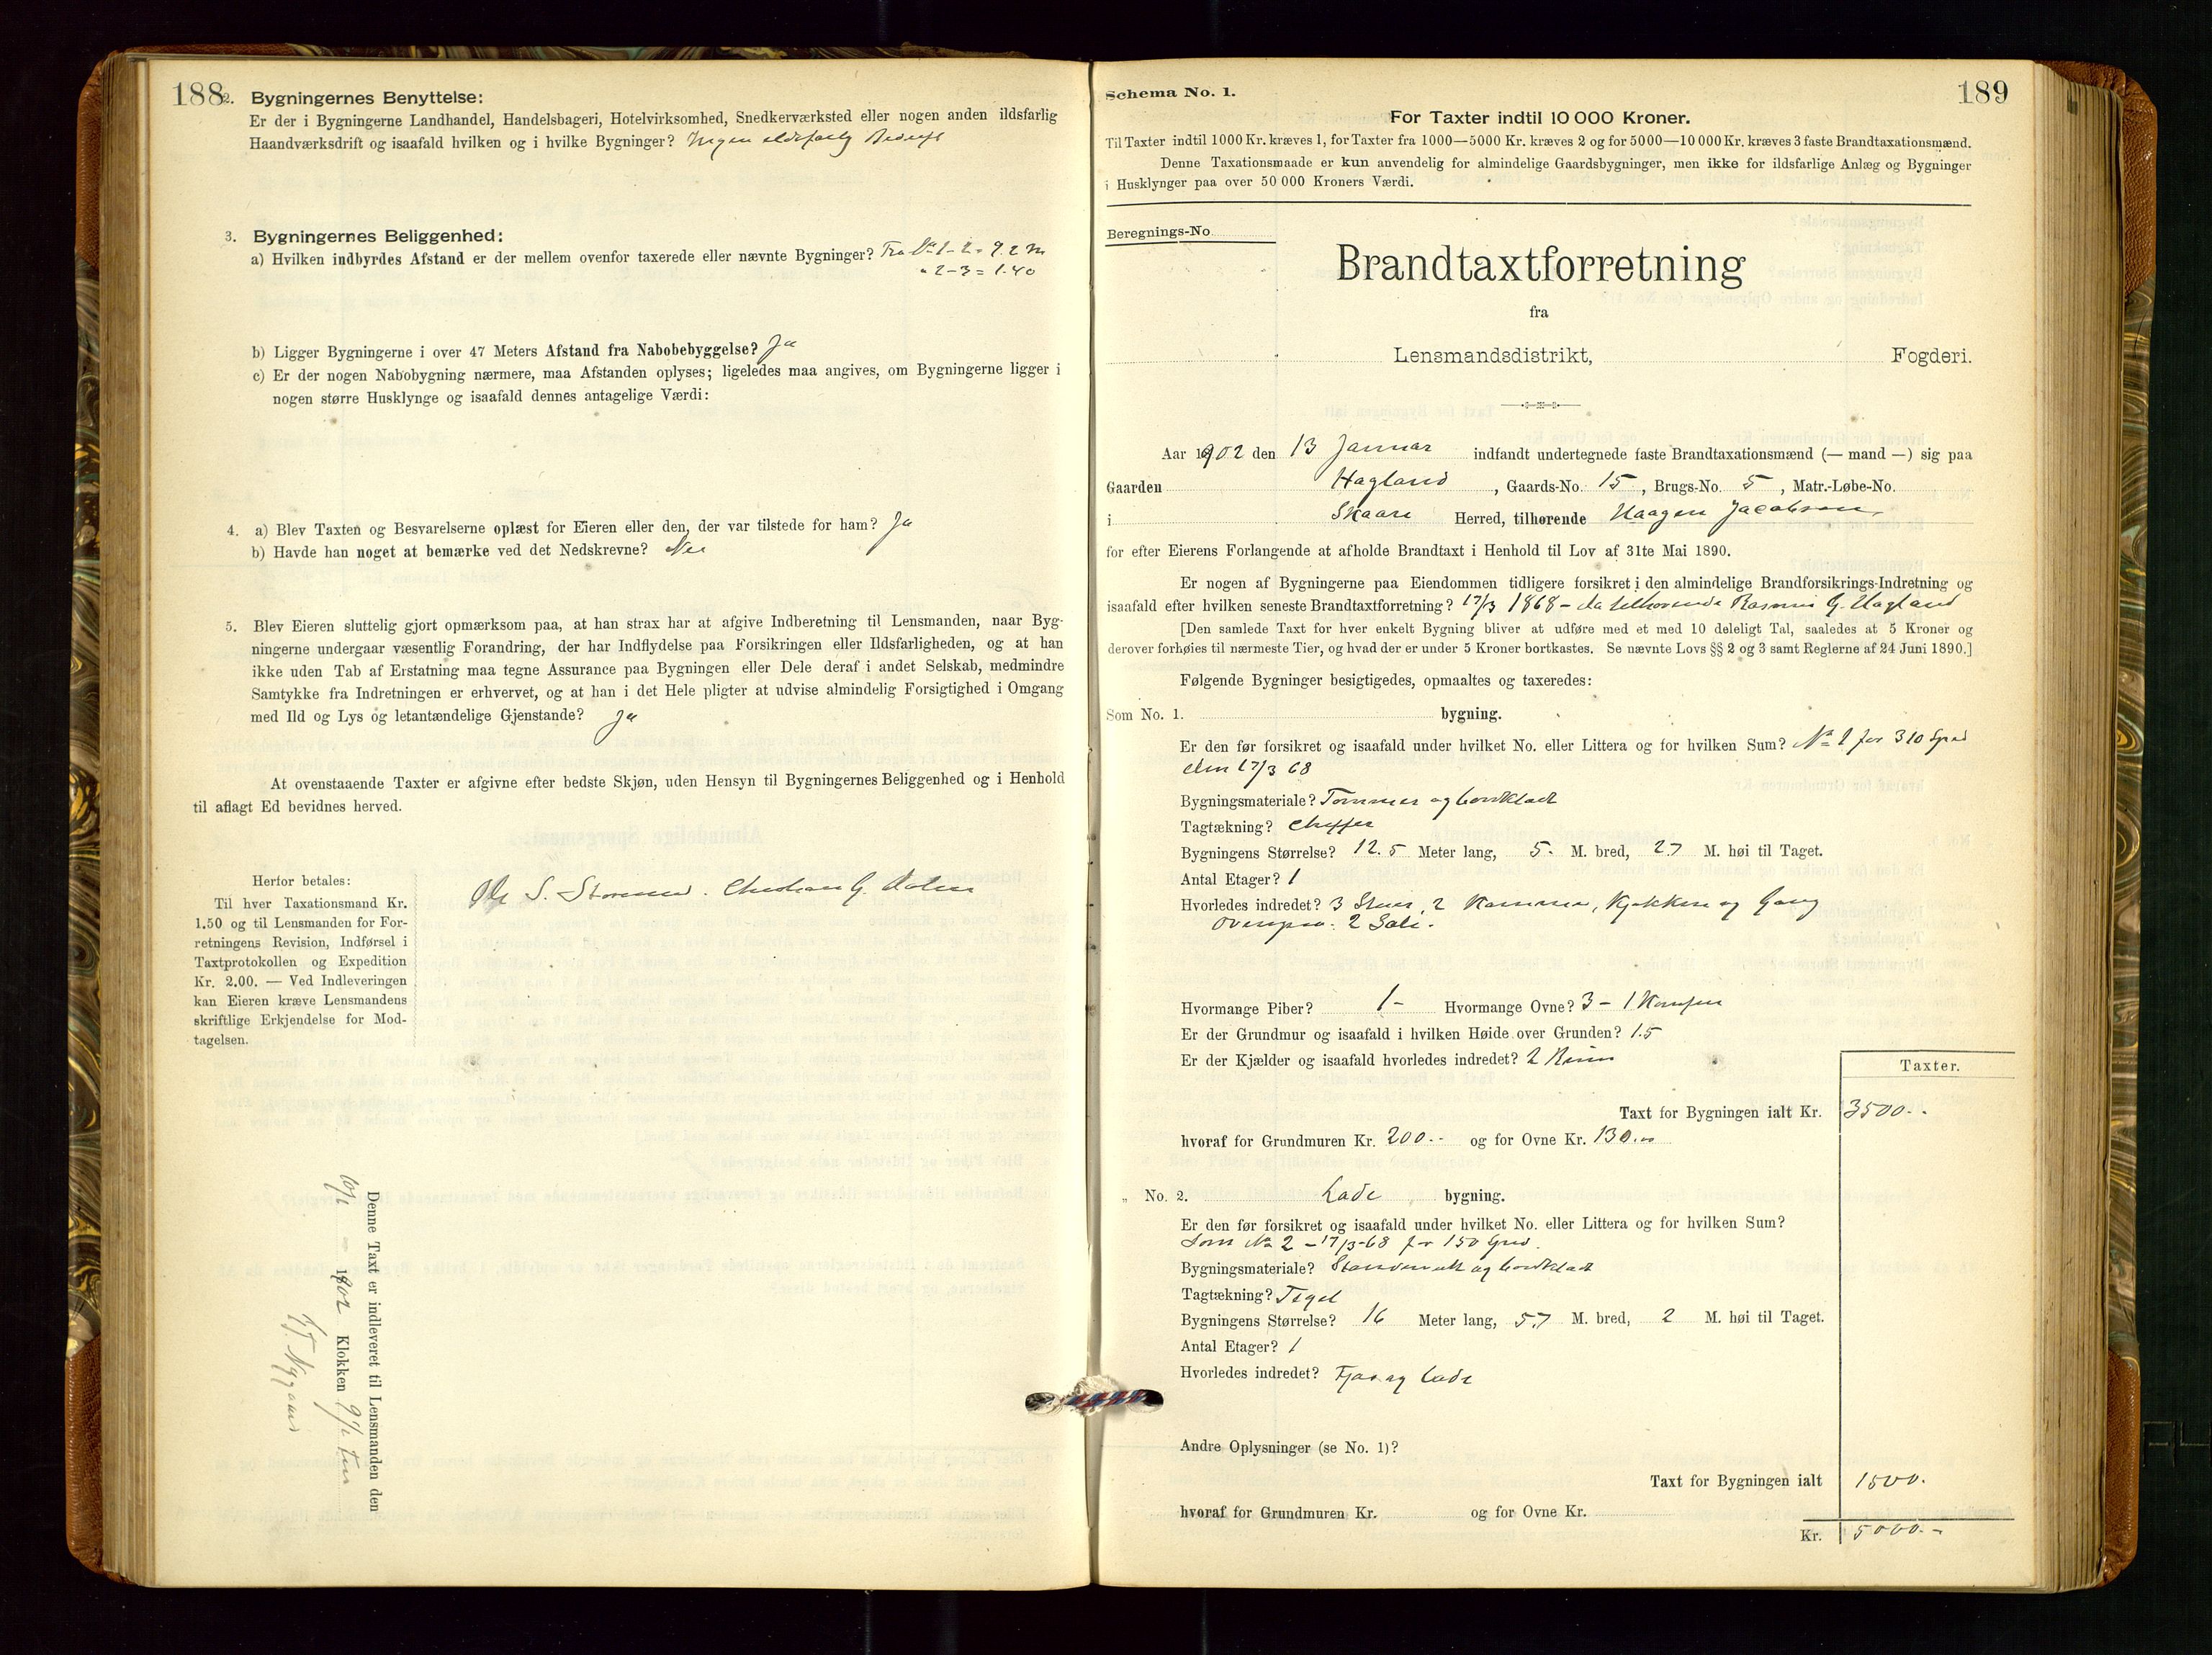 188
2. Bygningernes Benyttelse:
Er der i Bygningerne Landhandel, Handelsbageri, Hotelvirksomhed, Snedkerværksted eller nogen anden ildsfarlig
Haandværksdrift og isaafald hvilken og i hvilke Bygninger? Ingen ildsfarlig Bedrift
3. Bygningernes Beliggenhed:
a) Hvilken indbyrdes Afstand er der mellem ovenfor taxerede eller nævnte Bygninger? Fra No 1-2 = 9.2 m
" 2-3 = 1.40
b) Ligger Bygningerne i over 47 Meters Afstand fra Nabobebyggelse? Ja
c) Er der nogen Nabobygning nærmere, maa Afstanden oplyses; ligeledes maa angives, om Bygningerne ligger i
nogen større Husklynge og isaafald dennes antagelige Værdi:
4. a) Blev Taxten og Besvarelserne oplæst for Eieren eller den, der var tilstede for ham? Ja
b) Havde han noget at bemærke ved det Nedskrevne? Nei
5. Blev Eieren sluttelig gjort opmærksom paa, at han strax har at afgive Indberetning til Lensmanden, naar Byg-
ningerne undergaar væsentlig Forandring, der har Indflydelse paa Forsikringen eller Ildsfarligheden, og at han
ikke uden Tab af Erstatning maa tegne Assurance paa Bygningen eller Dele deraf i andet Selskab, medmindre
Samtykke fra Indretningen er erhvervet, og at han i det Hele pligter at udvise almindelig Forsigtighed i Omgang
med Ild og Lys og letantændelige Gjenstande? Ja
At ovenstaaende Taxter er afgivne efter bedste Skjøn, uden Hensyn til Bygningernes Beliggenhed og i Henhold
til aflagt Ed bevidnes herved.
Herfor betales:
Til hver Taxationsmand Kr.
1.50 og til Lensmanden for For-
retningens Revision, Indførsel i
Taxtprotokollen og Expedition
Kr. 2.00. — Ved Indleveringen
kan Eieren kræve Lensmandens
skriftlige Erkjendelse for Mod-
tagelsen.
S. Christian G.
Denne Taxt er indleveret til Lensmanden den
1902 Klokken
189
Schema No. 1.
For Taxter indtil 10 000 Kroner.
Til Taxter indtil 1000 Kr. kræves 1, for Taxter fra 1000—5000 Kr. kræves 2 og for 5000—10 000 Kr. kræves 3 faste Brandtaxationsmænd.
Denne Taxationsmaade er kun anvendelig for almindelige Gaardsbygninger, men ikke for ildsfarlige Anlæg og Bygninger
i Husklynger paa over 50 000 Kroners Værdi.
Beregnings-No
Brandtaxtforretning
fra
Lensmandsdistrikt, Fogderi.
Aar 1902 den 13 Januar indfandt undertegnede faste Brandtaxationsmænd (— mand —) sig paa
Gaarden Hagland, Gaards-No. 15, Brugs-No. 5, Matr.-Løbe-No.
i Skaare Herred, tilhørende Haagen Jacobsen
for efter Eierens Forlangende at afholde Brandtaxt i Henhold til Lov af 31te Mai 1890.
Er nogen af Bygningerne paa Eiendommen tidligere forsikret i den almindelige Brandforsikrings-Indretning og
isaafald efter hvilken seneste Brandtaxtforretning? 17/3 1868 - da tilhørende Rasmus G. Hagland
[Den samlede Taxt for hver enkelt Bygning bliver at udføre med et med 10 deleligt Tal, saaledes at 5 Kroner og
derover forhøies til nærmeste Tier, og hvad der er under 5 Kroner bortkastes. Se nævnte Lovs §§ 2 og 3 samt Reglerne af 24 Juni 1890.]
Følgende Bygninger besigtigedes, opmaaltes og taxeredes:
Som No. 1. bygning.
Er den før forsikret og isaafald under hvilket No. eller Littera og for hvilken Sum? No 1 for 310 Spd
den 17/3 68
Bygningsmateriale? Tømmer og bordklædt
Tagtækning? Skiffer
Bygningens Størrelse? 12.5 Meter lang, 5. M. bred, 2.7 M. høi til Taget.
Antal Etager? 1
Hvorledes indredet? 3 Stuer, 2 Kammer, Kjøkken og Gang
ovenpaa: 2 Sale.
Hvormange Piber? 1 - Hvormange Ovne? 3 - 1 Komfur
Er der Grundmur og isaafald i hvilken Høide over Grunden? 1.5
Er der Kjælder og isaafald hvorledes indredet? 2 Rum
Taxter.
Taxt for Bygningen ialt Kr. 3500.-
hvoraf for Grundmuren Kr. 200.- og for Ovne Kr. 130.00
" No. 2. Lade bygning.
Er den før forsikret og isaafald under hvilket No. eller Littera og for hvilken Sum?
Som No 2 - 17/3-68 for 150 Spd.
Bygningsmateriale? Stavverk og bordklædt
Tagtækning? Tegel
Bygningens Størrelse? 16 Meter lang, 5.7 M. bred, 2 M. høi til Taget.
Antal Etager? 1
Hvorledes indredet? Fjøs og Lade
Andre Oplysninger (se No. 1)?
Taxt for Bygningen ialt 1500.
hvoraf for Grundmuren Kr. og for Ovne Kr.
Kr. 5000.-